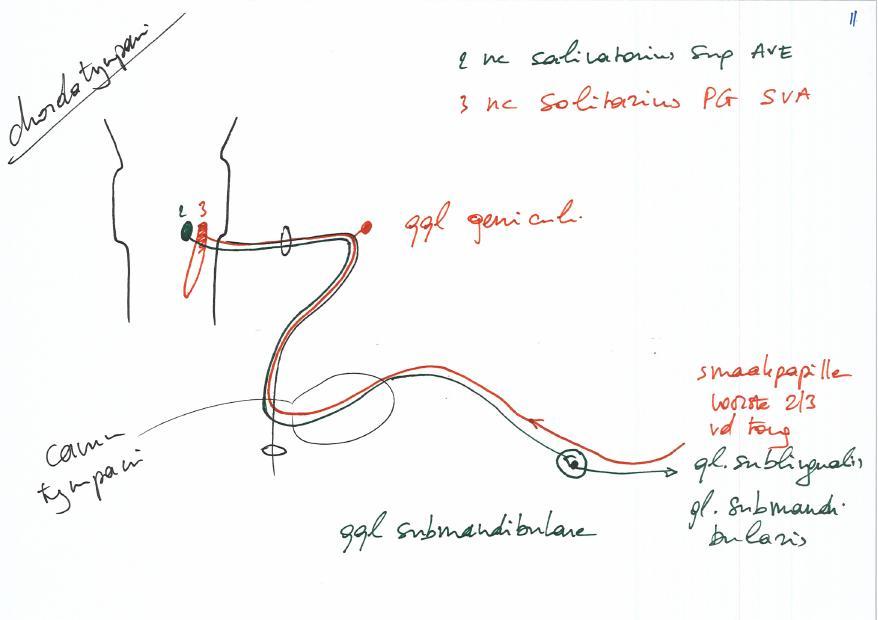 11
chorda tympani
2 nc salivatorius sup AVE
3 nc solitarius PG SVA
2 3
ggl geniculi.
smaakpapille
voorste 2/3
vd tong
cavum
tympani
gl. sublingualis
gl. submandi-
bularis
ggl submandibulare